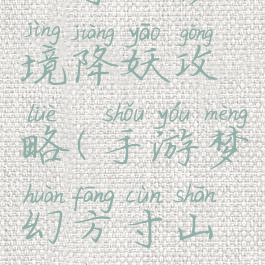 jìng jiàng yāo gōng
境降妖攻
lüè shǒu yóu mèng
略(手游梦
huàn fāng cùn shān
幻方寸山